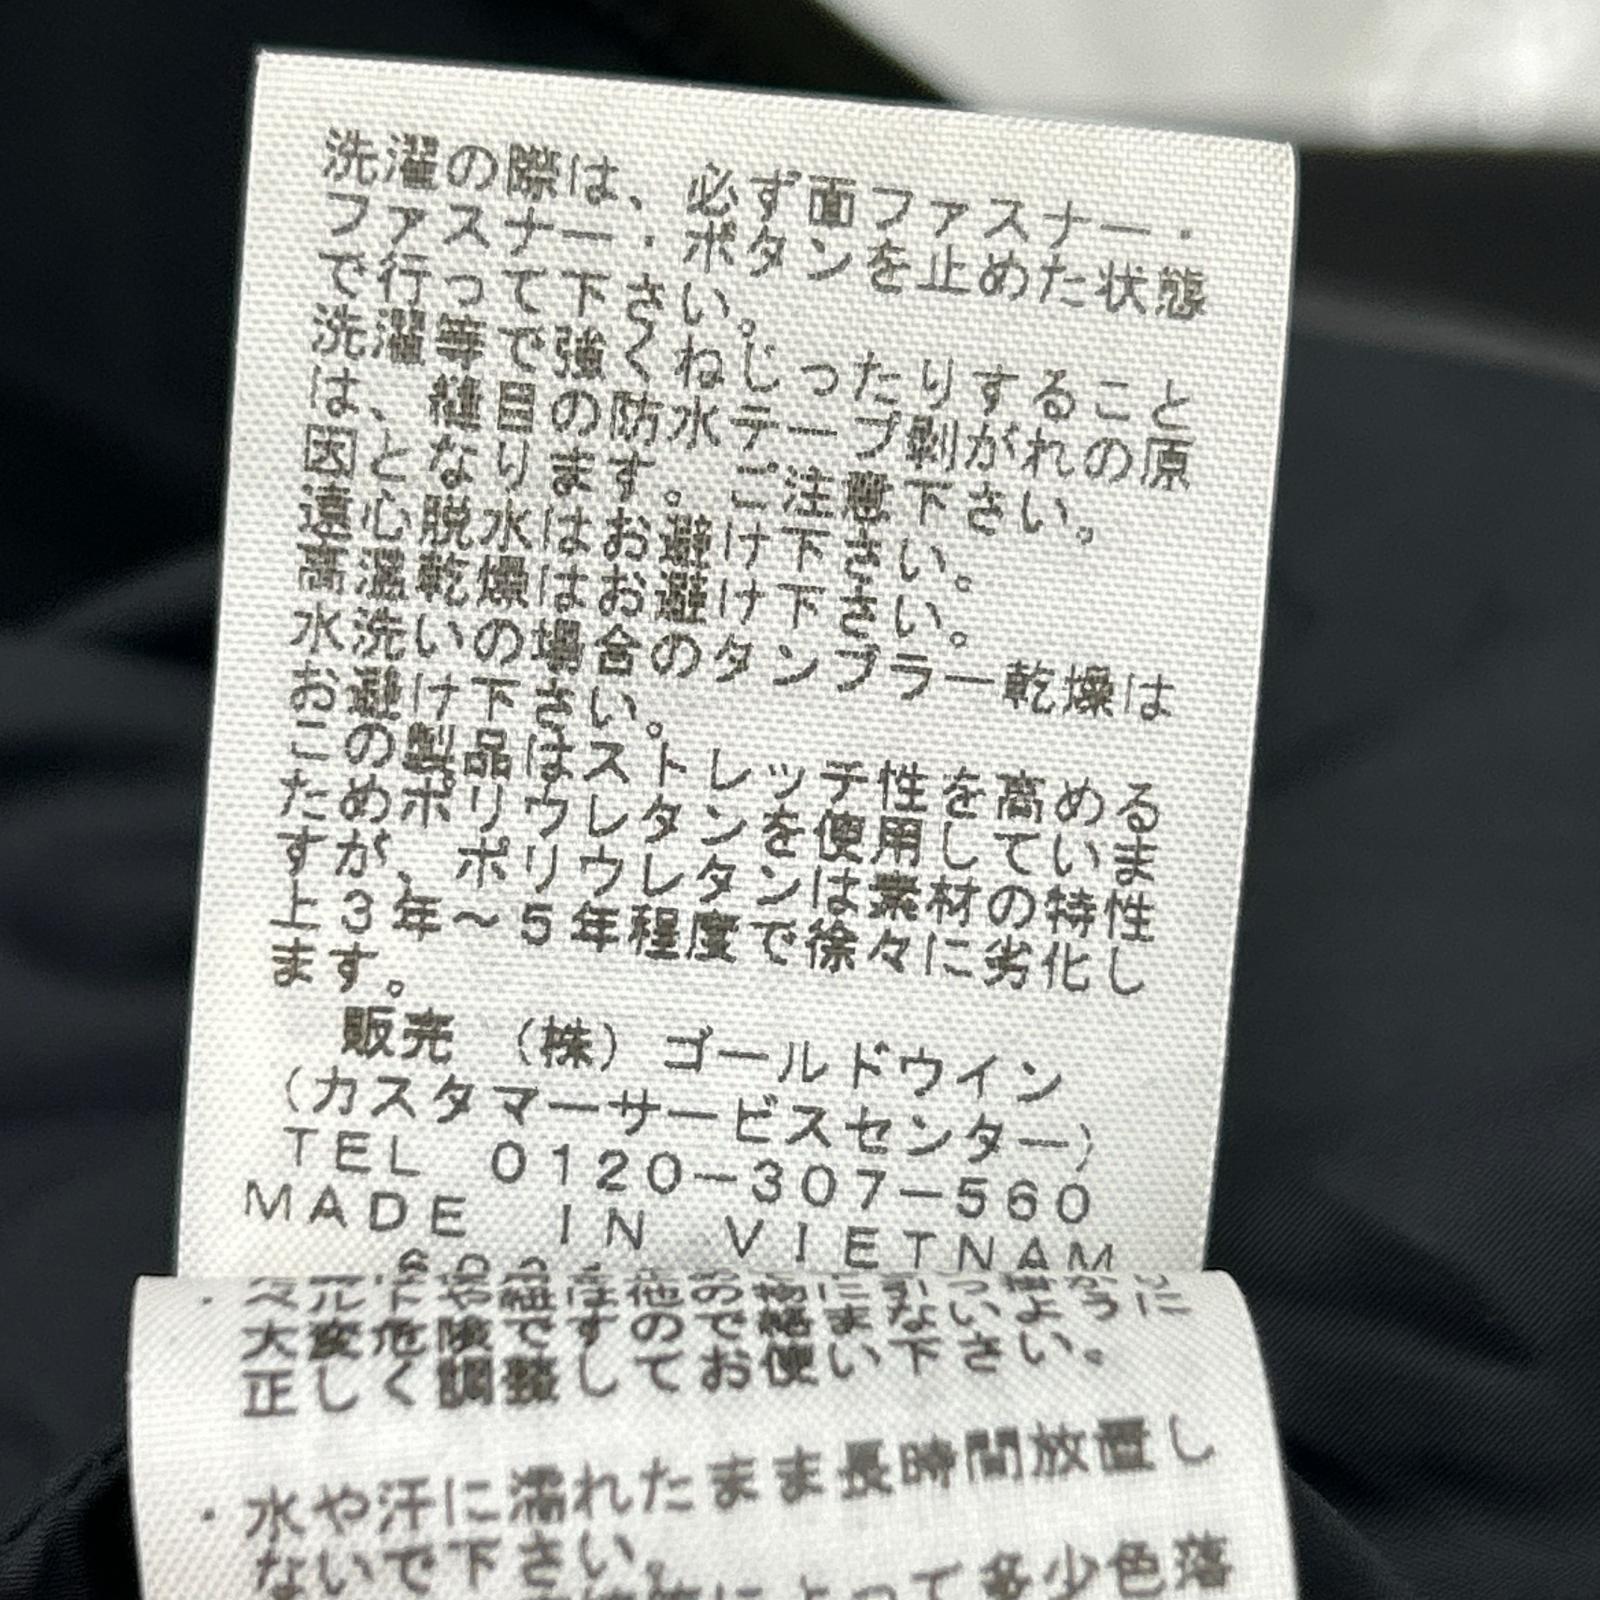 洗濯の際は、必ず面ファスナー・
ファスナー・ボタンを止めた状態
で行って下さい。
洗濯等で強くねじったりすること
は、縫目の防水テープ剥がれの原
因となります。ご注意下さい。
遠心脱水はお避け下さい。
高温乾燥はお避け下さい。
水洗いの場合のタンブラー乾燥は
お避け下さい。
この製品はストレッチ性を高める
ためポリウレタンを使用していま
すが、ポリウレタンは素材の特性
上3年～5年程度で徐々に劣化し
ます。
販売 (株)ゴールドウイン
(カスタマーサービスセンター)
TEL 0120-307-560
MADE IN VIETNAM
大変危険ですので絡まないように
正しく調整してお使い下さい。
・水や汗に濡れたまま長時間放置し
ないで下さい。
によって多少色落